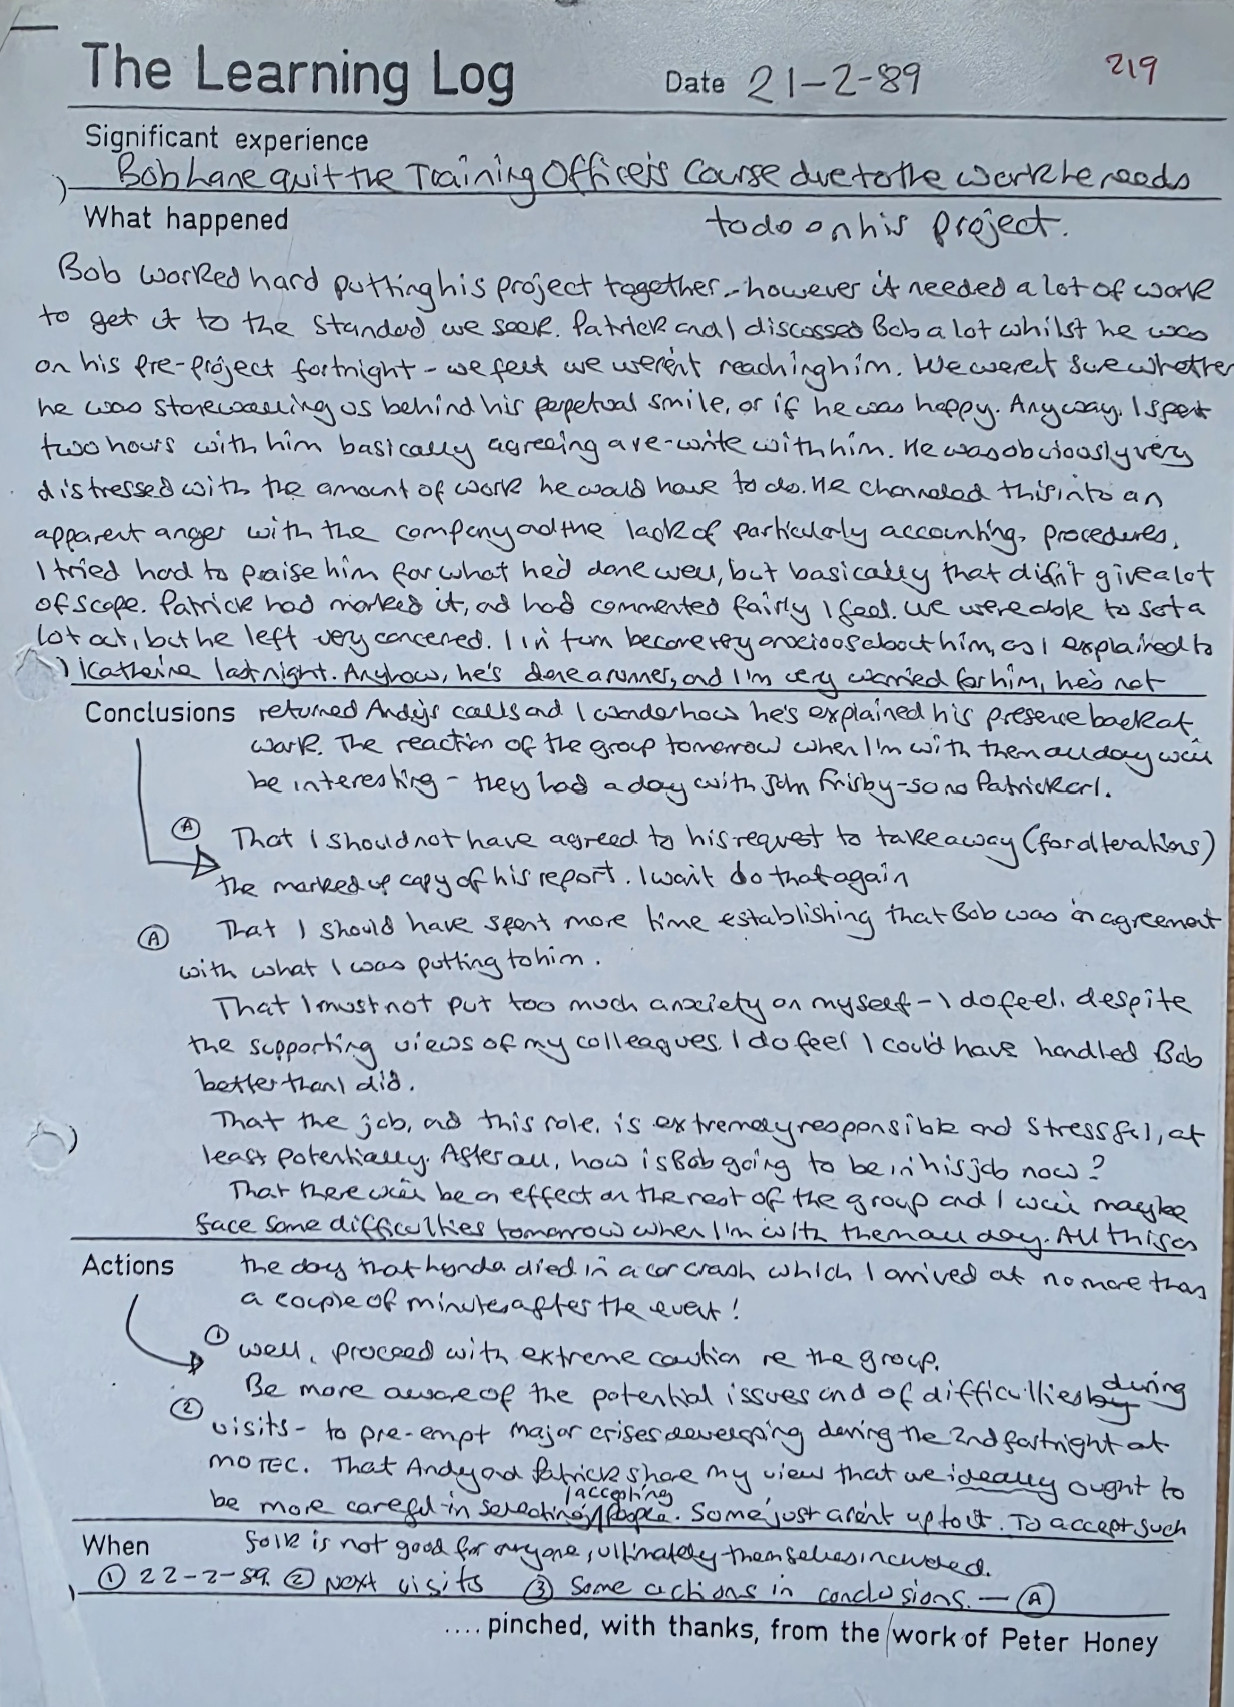 The Learning Log Date 21-2-89 219
Significant experience
Bob Lane quit the Training Officer's Course due to the work he needs
What happened to do on his project.
Bob worked hard putting his project together - however it needed a lot of work
to get it to the standard we seek. Patrick and I discussed Bob a lot whilst he was
on his pre-project fortnight - we feet we weren't reaching him. We weren't sure whether
he was stonewalling us behind his perpetual smile, or if he was happy. Anyway. I spent
two hours with him basically agreeing a re-write with him. He was obviously very
distressed with the amount of work he would have to do. He channeled this into an
apparent anger with the company and the lack of particularly accounting, procedures.
I tried hard to praise him for what he'd done well, but basically that didn't give a lot
of scope. Patrick had marked it, and had commented fairly I feel. We were able to sort a
lot out, but he left very concerned. I in turn became very anxious about him, as I explained to
Katherine last night. Anyhow, he's done a runner, and I'm very worried for him, he's not
Conclusions returned Andy's calls and I wonder how he's explained his presence back at
work. The reaction of the group tomorrow when I'm with them all day will
be interesting - they had a day with John Frisby - so no Patrick or I.
(A) That I should not have agreed to his request to take away (for alterations)
the marked up copy of his report. I wait do that again
(A) That I should have spent more time establishing that Bob was in agreement
with what I was putting to him.
That I must not put too much anxiety on myself - I do feel, despite
the supporting views of my colleagues, I do feel I could have handled Bob
better than I did.
That the job, and this role, is extremely responsible and stressful, at
least potentially. After all, how is Bob going to be in his job now?
That there will be an effect on the rest of the group and I will maybe
face some difficulties tomorrow when I'm with them all day. All this on
Actions the day that died in a car crash which I arrived at no more than
a couple of minutes after the event!
(1) Well, proceed with extreme caution re the group.
Be more aware of the potential issues and of difficulties by during
(2) visits - to pre-empt major crises developing during the 2nd fortnight at
MOTEC. That Andy and Patrick share my view that we ideally ought to
be more careful in selecting/accepting people. Some just aren't up to it. To accept such
When folk is not good for anyone, ultimately themselves included.
(1) 22-2-89. (2) Next visits (3) Some actions in conclusions. - (A)
.... pinched, with thanks, from the work of Peter Honey